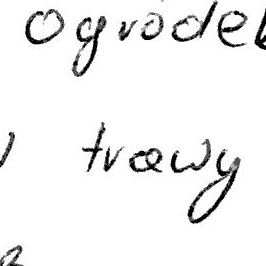 ogróde
trawy